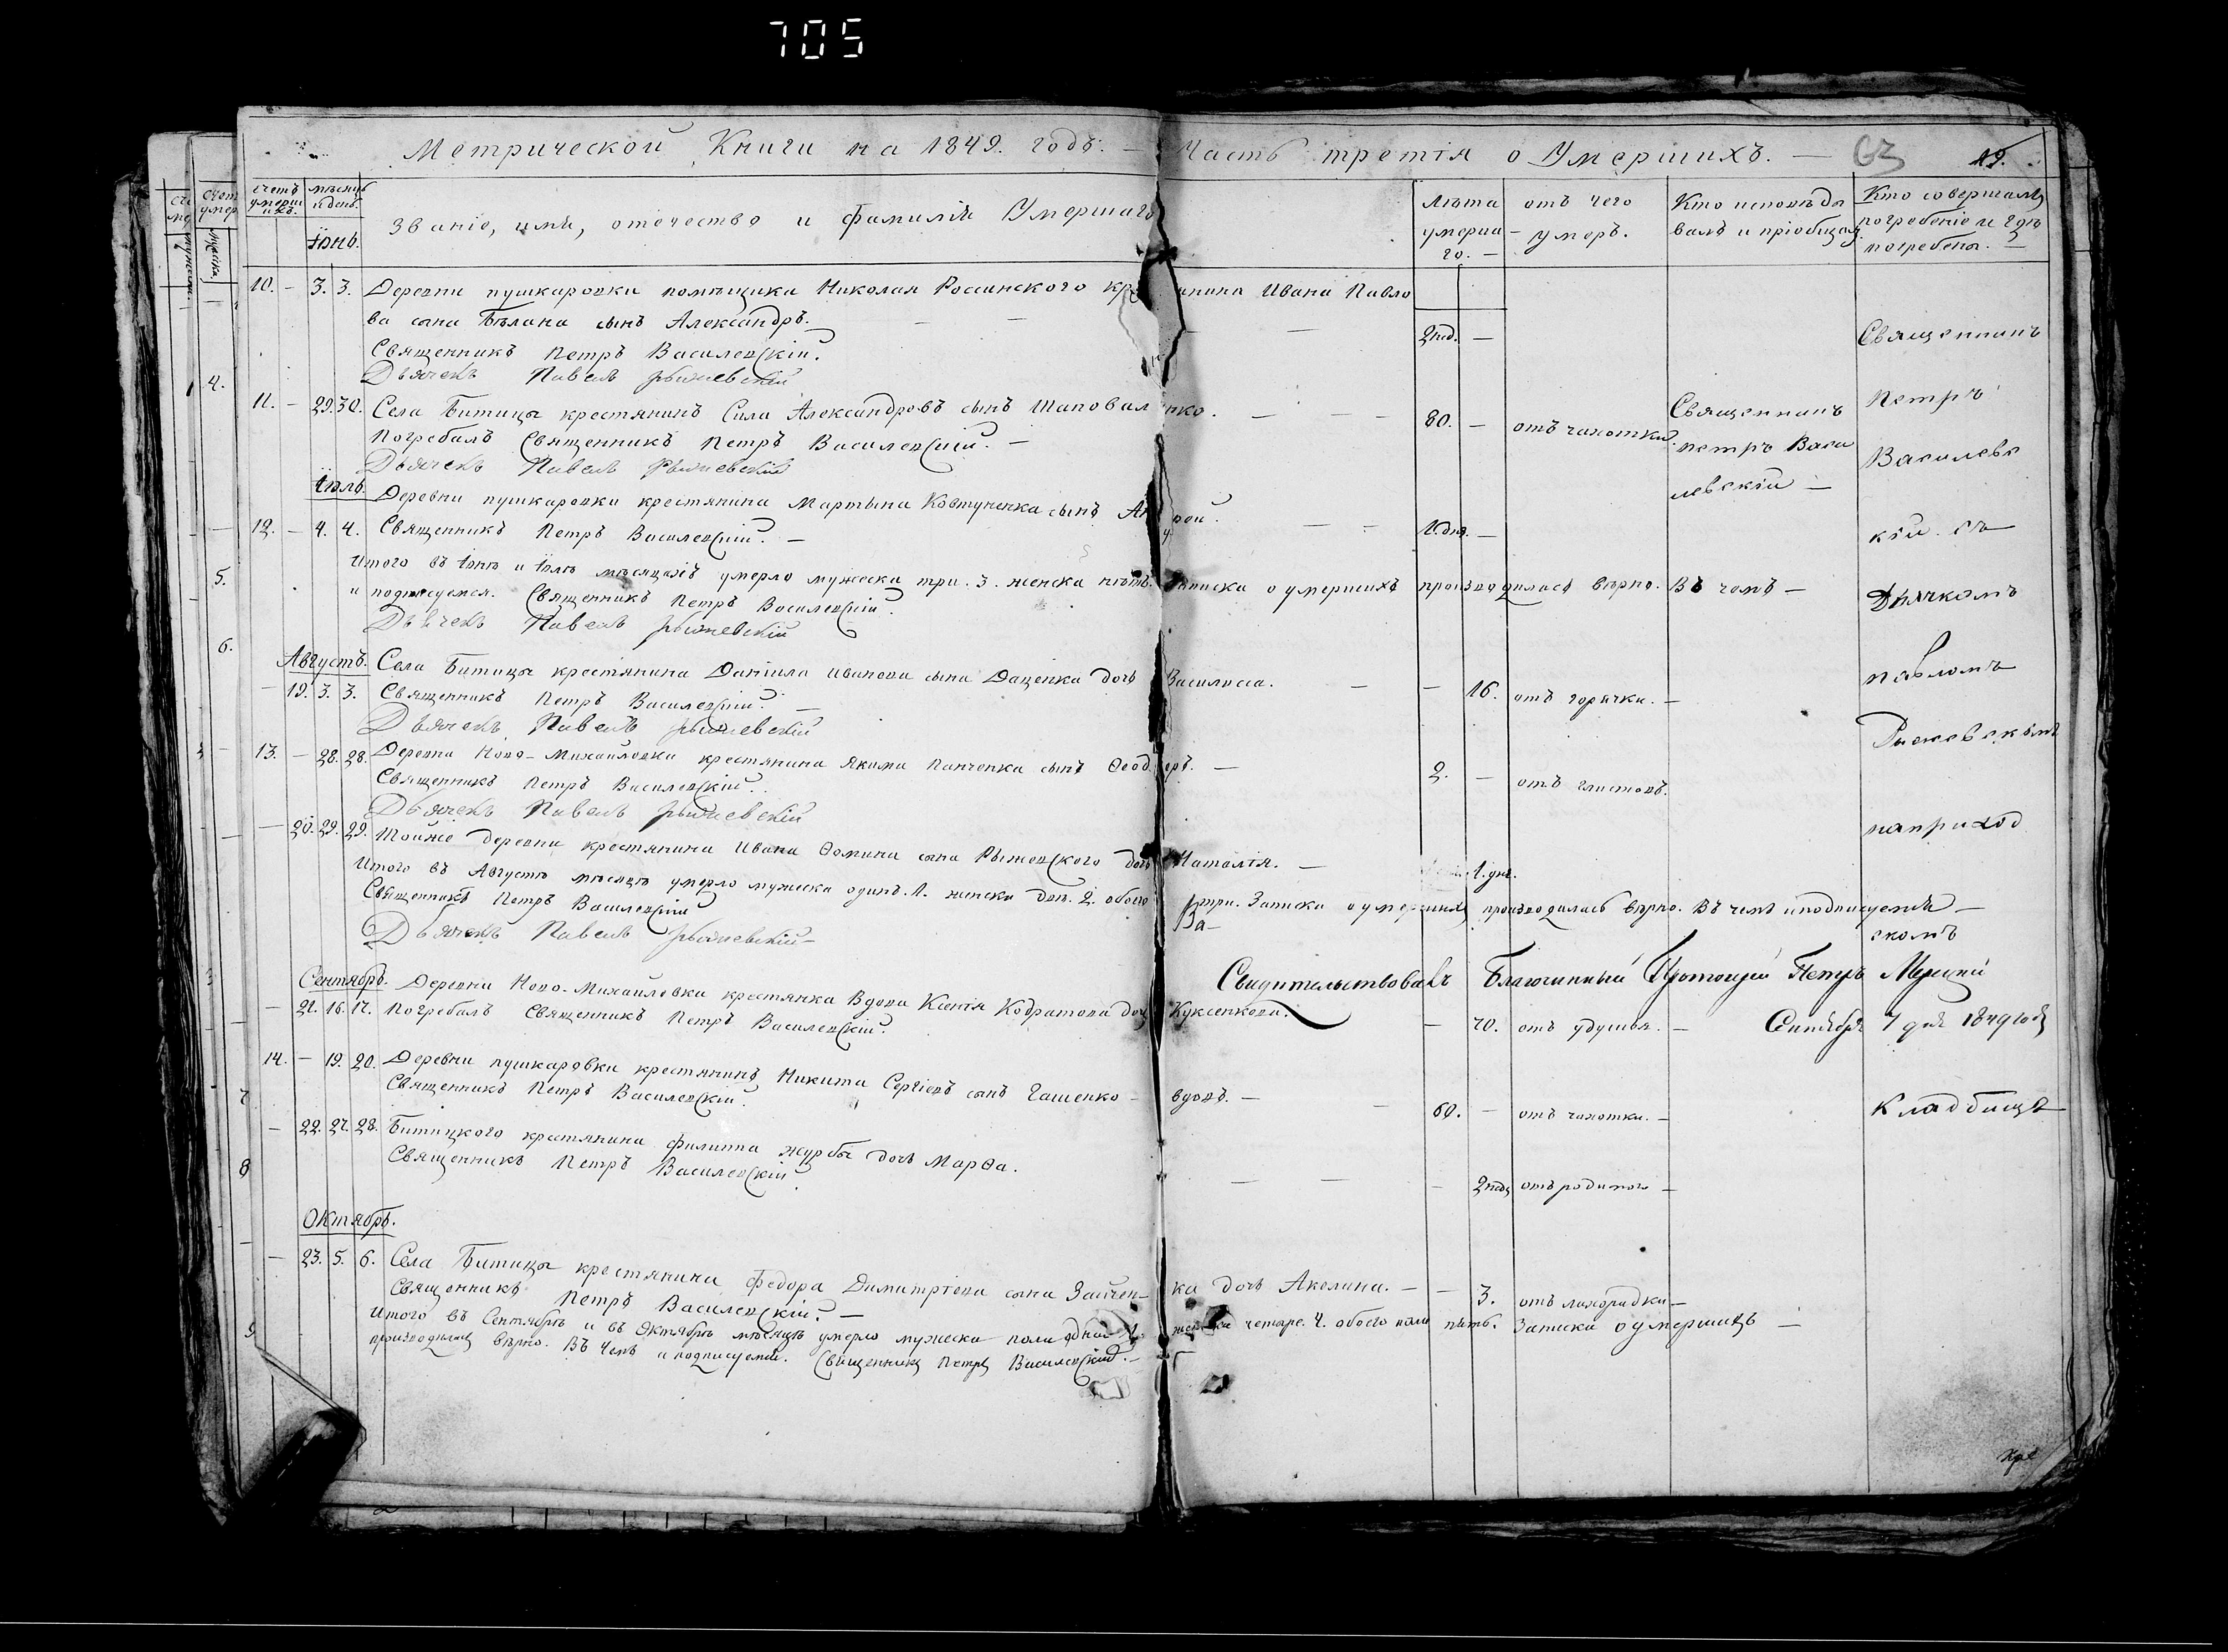 705
Метрической Книги на 1849. годъ. — Часть третія о Умершихъ. — 63 19.
счетъ умерших. мѣсяцъ и день. Званіе, имя, отечество и фамилія Умершаго Лѣта умерша-го. — отъ чего умеръ. Кто исповѣдывалъ и пріобщал. Кто совершалъ погребеніе и гдѣ погребены. —
Іюнь.
10. — 3. 3. Деревни пушкаровки помѣщика Николая Россинского крестьянина Ивана Павло
ва сына Бѣлана сынъ Александръ. — — — 2нед. —
Священникъ Петръ Василевскій.
Дьячекъ Павелъ Рыжевскій
11. — 29. 30. Села Битицы крестянинъ Сила Александровъ сынъ Шаповаленко. — — — 80. — отъ чахотки. Священникъ
Погребалъ Священникъ Петръ Василевскій. — петръ Васи
Дьячекъ Павелъ Рыжевскій левскій —
Іюль.
Деревни пушкаровки крестянина Мартына Ковтуненка сынъ
12. — 4. 4. Священникъ Петръ Василевскій. —
Итого въ Іюнѣ и Іюлѣ мѣсяцахъ умерло мужеска три. 3. женска нѣтъ. Записка о умершихъ производилась вѣрно. Въ чемъ —
и подписуемся. Священникъ Петръ Василевскій.
Дьячекъ Павелъ Рыжевскій
Августъ. Села Битицы крестянина Даніила иванова сына Даценка дочь Василисса. — — 16. отъ горячки. —
— 19. 3. 3. Священникъ Петръ Василевскій. —
Дьячекъ Павелъ Рыжевскій
13. — 28. 28. Деревни Ново-Михайловки крестянина Якима Панченка сынъ Феодоръ. — 2. — отъ глистовъ.
Священникъ Петръ Василевскій.
Дьячекъ Павелъ Рыжевскій
— 20. 29. 29. Тойже деревни крестянина Ивана Фомина сына Рыжевского дочь Наталія. — 1. дня.
Итого въ Августѣ мѣсяцѣ умерло мужеска одинъ. 1. женска двѣ. 2. обоего три. Записка о умершихъ производилась вѣрно. Въ чемъ и подписуемся —
Священникъ Петръ Василевскій
Дьячекъ Павелъ Рыжевскій —
Свидительствовалъ Благочинный Протоіерей Петръ
Сентября 7 дня 1849 года
Сентябрь. Деревни Ново-Михайловки крестянка Вдова Ксенія Кодратова дочь Куксенкова. — 70. отъ удушья. —
— 21. 16. 17. Погребалъ Священникъ Петръ Василевскій.
14. — 19. 20. Деревни пушкаровки крестянинъ Никита Сергіевъ сынъ Гашенко — вдовъ. — — 60. — отъ чахотки. —
Священникъ Петръ Василевскій.
— 22. 27. 28. Битицкого крестянина Филиппа журбы дочь Марѳа. — — — 2нед. отъ родимого —
Священникъ Петръ Василевскій.
Октябрь.
— 23. 5. 6. Села Битицы крестянина Федора Димитріева сына Зайчен-ка дочь Акелина. — — 3. отъ лихорадки —
Священникъ Петръ Василевскій. —
Итого въ Сентябрѣ и въ Октябрѣ мѣсяцѣ умерло мужеска пола одна 1. женска четаре. 4. обоего пола пять. Записка о умершихъ —
производилась вѣрно. Въ чемъ и подписуемся. Священникъ Петръ Василевскій. —
Священникъ
Петръ
Василевс
кій. съ
Дьячкомъ
павломъ
Рыжевскимъ
наприход
скомъ
Кладбищѣ